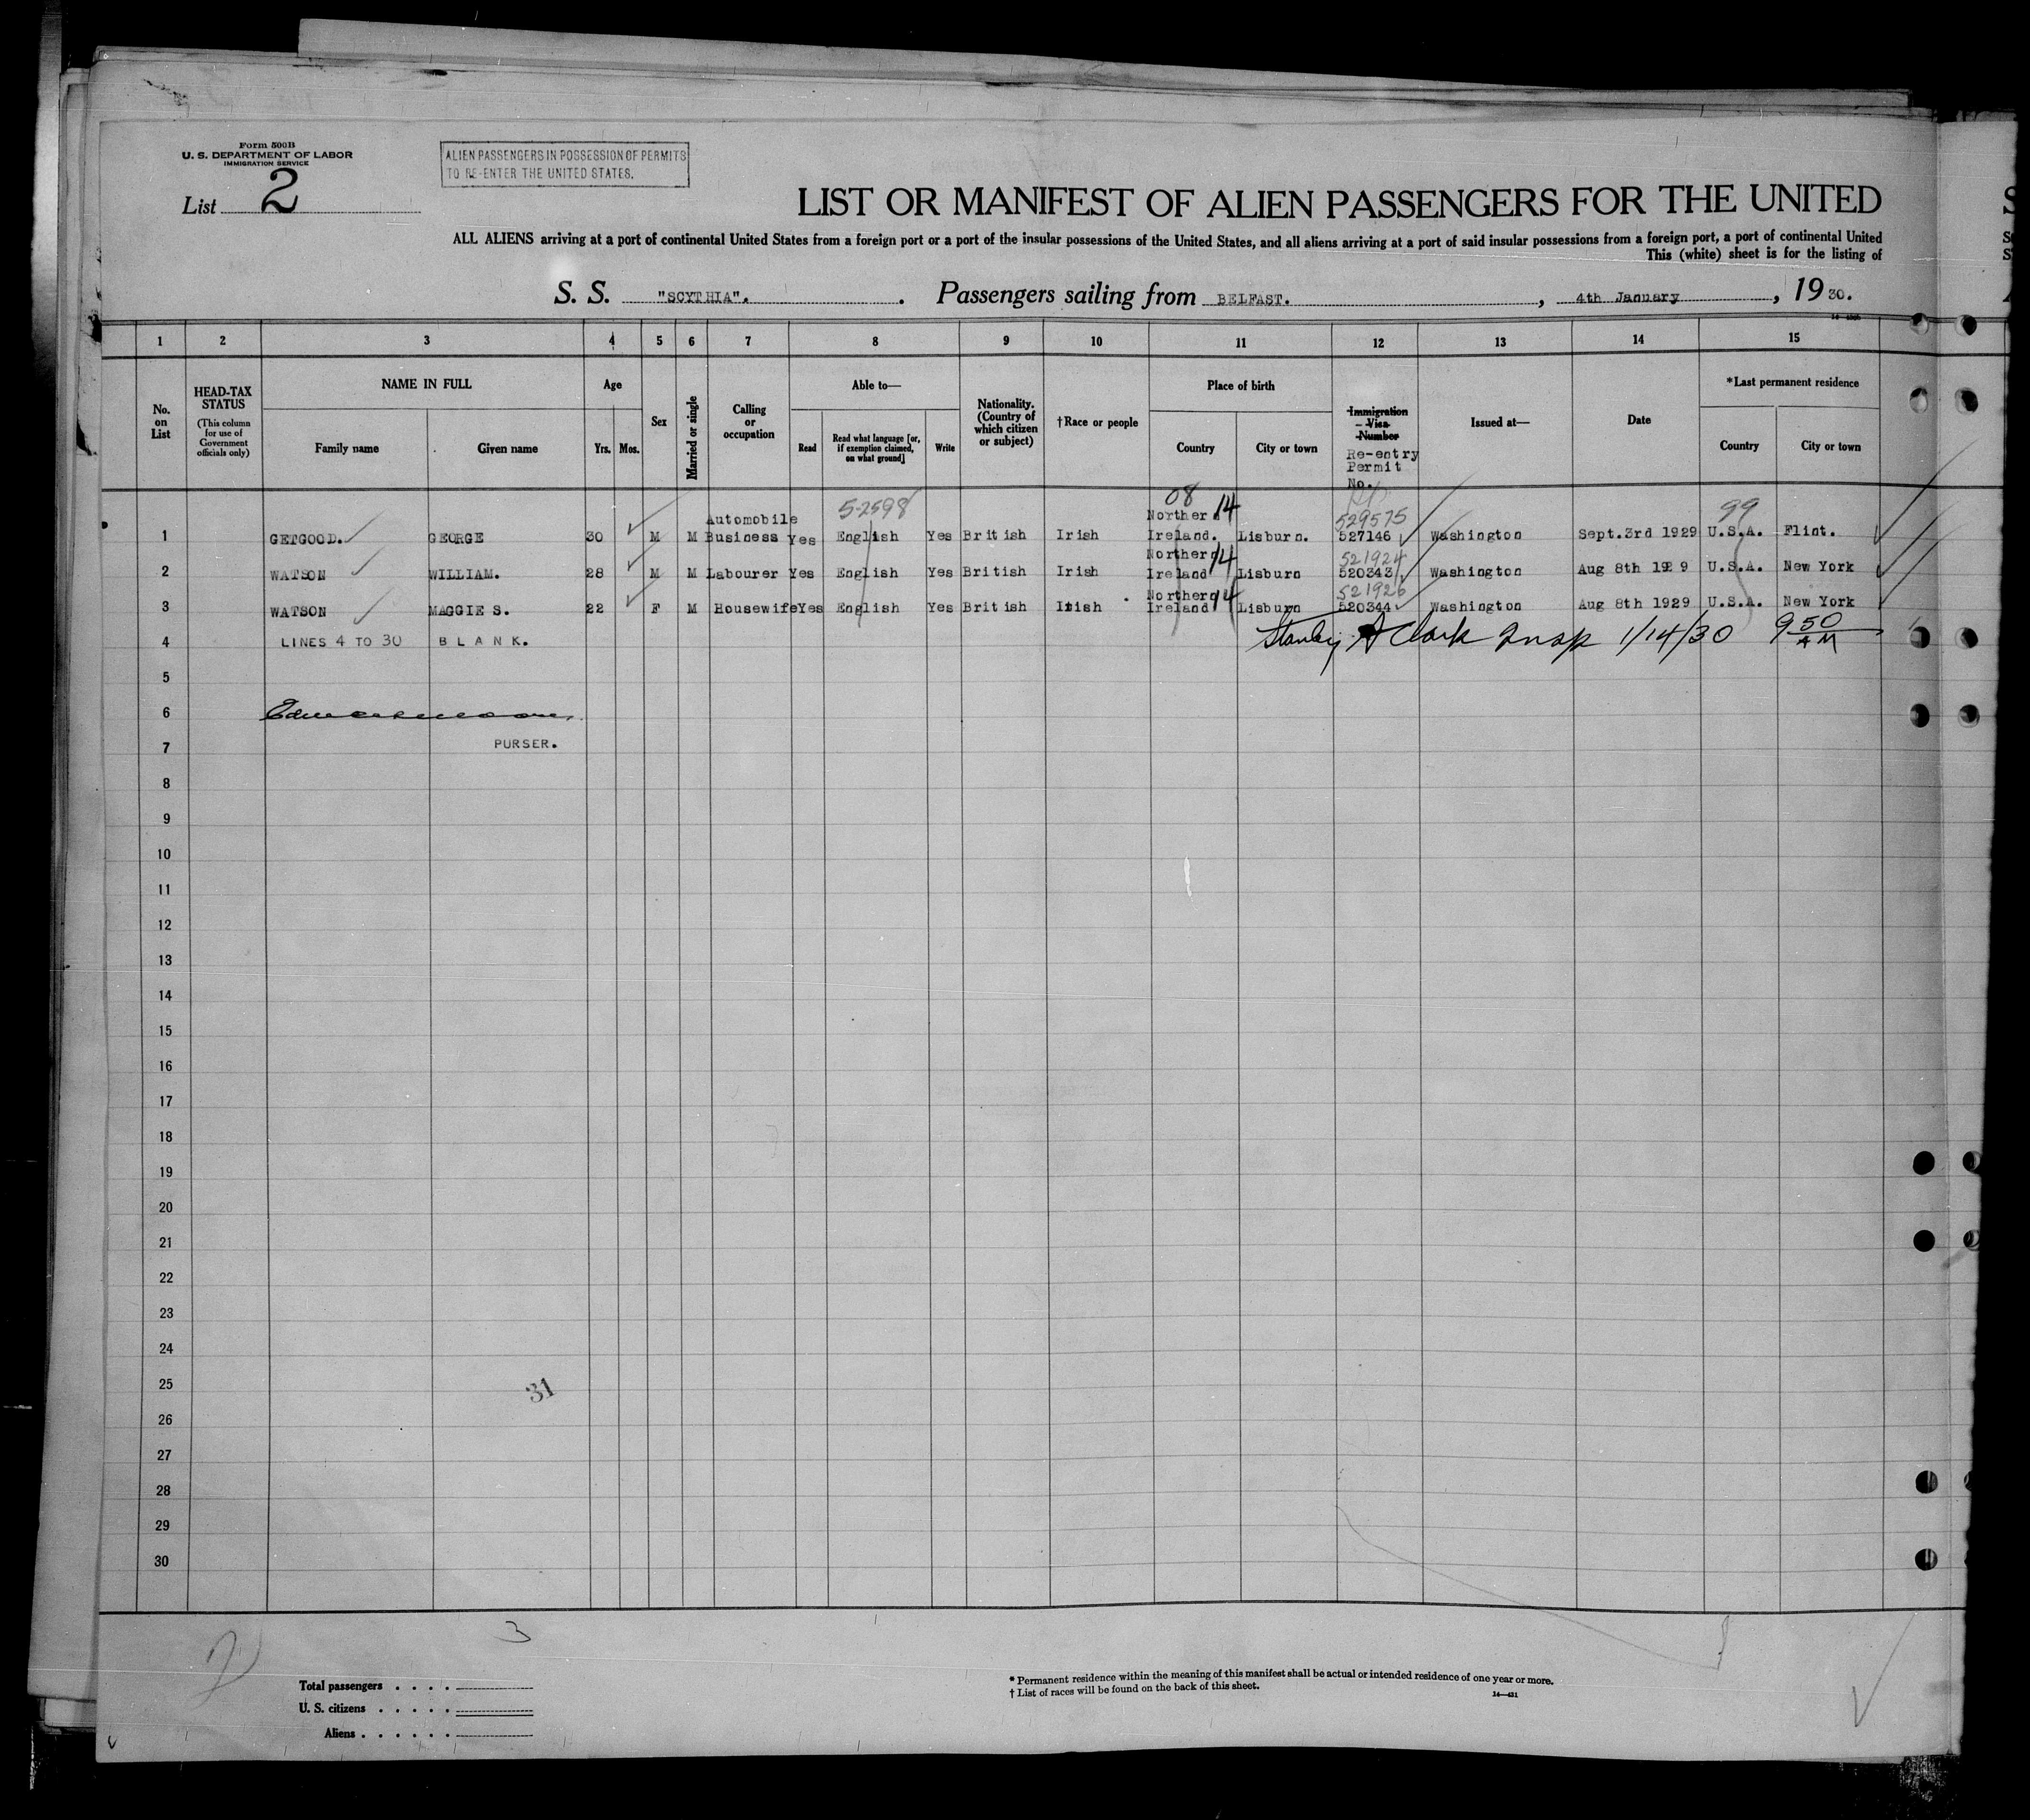 Form 500B
U. S. DEPARTMENT OF LABOR
IMMIGRATION SERVICE
List 2
ALIEN PASSENGERS IN POSSESSION OF PERMITS
TO RE-ENTER THE UNITED STATES.
LIST OR MANIFEST OF ALIEN PASSENGERS FOR THE UNITED
ALL ALIENS arriving at a port of continental United States from a foreign port or a port of the insular possessions of the United States, and all aliens arriving at a port of said insular possessions from a foreign port, a port of continental United
This (white) sheet is for the listing of
S. S. "SCYTHIA". Passengers sailing from BELFAST. , 4th January , 19 30.
1 2 3 4 5 6 7 8 9 10 11 12 13 14 15
No. on List
HEAD-TAX STATUS
(This column for use of Government officials only)
NAME IN FULL
Family name Given name
Age
Yrs. Mos.
Sex
Married or single
Calling or occupation
Able to—
Read
Read what language [or, if exemption claimed, on what ground]
Write
Nationality. (Country of which citizen or subject)
†Race or people
Place of birth
Country City or town
Immigration Visa Number
Re-entry Permit No.
Issued at—
Date
*Last permanent residence
Country City or town
5-2598 08 99
Automobile Northern 14 529575
1 GETGOOD. GEORGE 30 M M Business Yes English Yes British Irish Ireland. Lisburn. 527146 Washington Sept.3rd 1929 U.S.A. Flint.
Northern 14 521924
2 WATSON WILLIAM. 28 M M Labourer Yes English Yes British Irish Ireland Lisburn 520343 Washington Aug 8th 1929 U.S.A. New York
Northern 14 521926
3 WATSON MAGGIE S. 22 F M Housewife Yes English Yes British Irish Ireland Lisburn 520344 Washington Aug 8th 1929 U.S.A. New York
4 LINES 4 TO 30 BLANK. Stanley A Clark Insp 1/14/30 9 50 AM
5
6
7 PURSER.
8
9
10
11
12
13
14
15
16
17
18
19
20
21
22
23
24
25
31
26
27
28
29
30
3
Total passengers
U. S. citizens
Aliens
* Permanent residence within the meaning of this manifest shall be actual or intended residence of one year or more.
† List of races will be found on the back of this sheet.
14—431